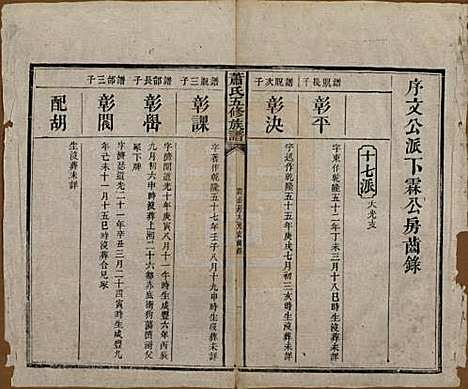 序文公派下霖公房齒錄
十七派 大光支
譜賜長子
彰平
字東作乾隆五十二年丁未三月十八巳時生沒葬未詳
譜賜次子
彰決
字廷作乾隆五十五年庚戌七月初三亥時生沒葬未詳
蕭氏五修族譜
譜賜三子
彰課
字著作乾隆五十七年壬子八月十九申時生沒葬未詳
譜部長子
彰嶨
字濟開道光十年庚寅八月十一午時生咸豐六年丙辰
九月初六申時沒葬上湘二十六都赤底衝狗蕩濟開父
冢下
譜部三子
彰閣
字濟瑟道光二十一年辛丑三月二十四寅時生咸豐九
年己未十一月十五巳時沒葬合兄冢
配胡
生沒葬未詳